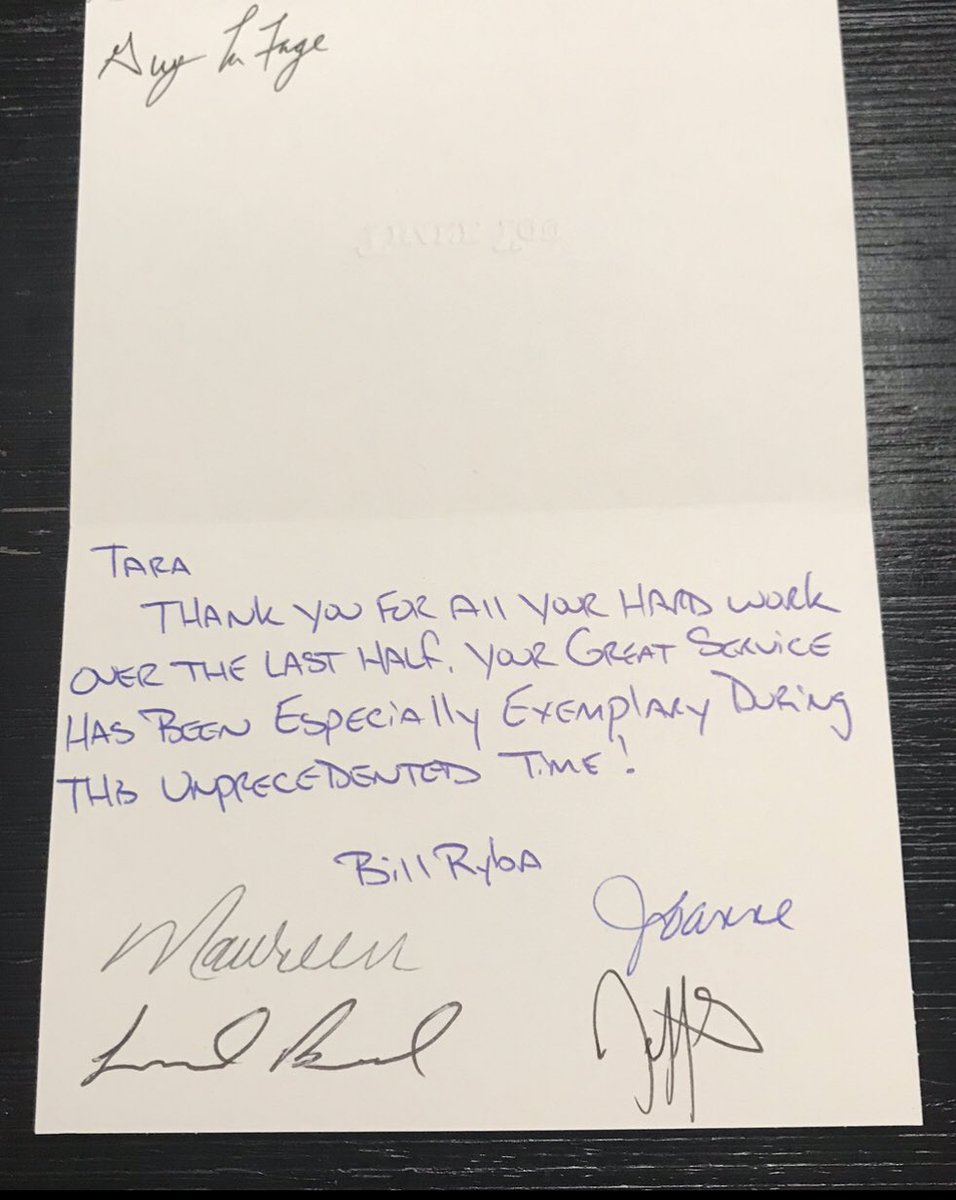 Guy La Fage
Thank You
TARA
THANK YOU FOR All YOUR HARD WORK
OVER THE LAST HALF. YOUR GREAT SERVICE
HAS BEEN ESpeciAlly EXEMplARY DURiNg
THIS UNPRECEDENTED TiME!
Bill RybA
Maureen
Joanne